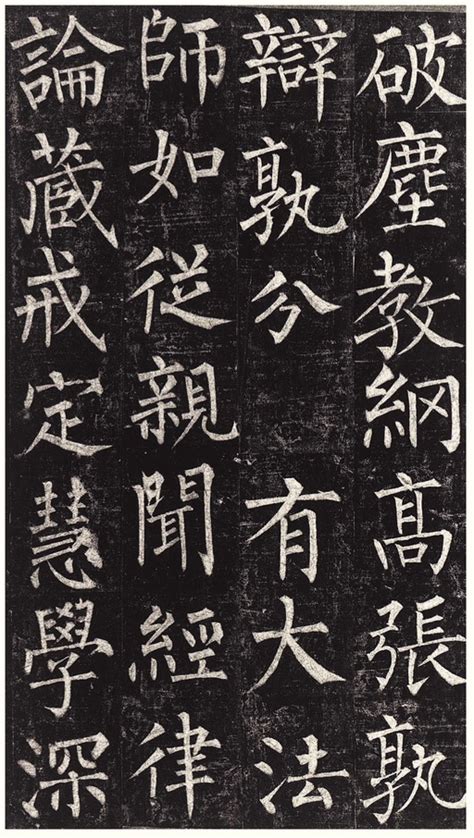 破塵教綱高張孰
辯孰分 有大法
師如從親聞經律
論蔵戒定慧學深